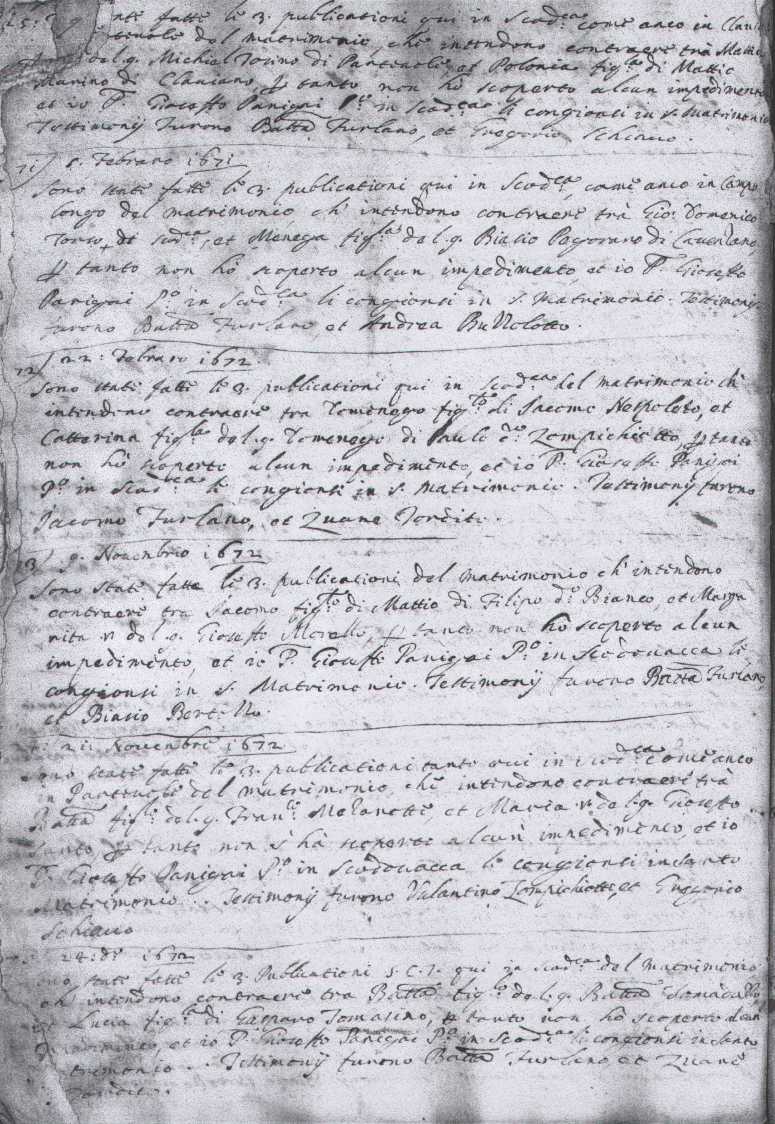 fatte le 3. publicationi qui in Scod.ca come anco in
del matrimonio, ch' intendono contraere trà Mattia
del q. Michiel Torino di et Polonia fig.la di Mattio
Marino di Clauiano, P tanto non hò scoperto alcun impedimento
et io P. Gioseffo Panigai P.o in Scod.ca li congionti in s. Matrimonio
Testimonij furono Batta Furlano, et Gregorio Schiauo.
71) Febraro 1671
Sono state fatte le 3. publicationi qui in Scod.ca, come anco in Campo
longo del matrimonio ch' intendono contraere trà Gio: Domenico
di Scod.ca, et Menega fig.la del q. Biasio Pegoraro di
P tanto non hò scoperto alcun impedimento, et io P. Gioseffo
Panigai P.o in Scod.ca li congionsi in s. Matrimonio. Testimonij
furono Batta Furlano et Andrea
72) 22: Febraro 1672
Sono state fatte le 3. publicationi qui in Scod.ca del matrimonio ch'
intendono contraere tra Domenego fig.lo di Jacomo Nespoledo, et
Cattarina fig.la del q. Domenego di Paulo Zompichiatto, P tanto
non hò scoperto alcun impedimento, et io P. Gioseffo Panigai
P.o in Scod.ca li congionti in s. Matrimonio. Testimonij furono
Jacomo Furlano, et Zuane Tordito.
9. Nouenbrio 1672
Sono state fatte le 3. publicationi del matrimonio ch' intendono
contraere tra Jacomo fig.lo di Mattio di Filipo d.o Bianco, et Marga
rita v del q. Gioseffo Morello, P tanto non hò scoperto alcun
impedimento, et io P. Gioseffo Panigai P.o in Scodouacca li
congionsi in s. Matrimonio. Testimonij furono Batta Furlano,
et Biasio Bertello.
21: Nouenbre 1672
Sono state fatte le 3. publicationi tanto qui in Scod.ca come anco
in del matrimonio, che intendono contraere trà
Batta fig.lo del q. Fran.co et Maria v del q. Gioseffo
P tanto non s' hà scoperto alcun impedimento, et io
P. Gioseffo Panigai P.o in Scodouacca li congionti in santo
Matrimonio. Testimonij furono Valantino Zompichiatto, et Gregorio
Schiauo
24: 1672
Sono state fatte le 3. Publicationi qui in Scod.ca del matrimonio
ch' intendono contraere tra Batta fig.lo del q. Batta
et Lucia fig.la di Gasparo Tomasino, P tanto non hò scoperto alcun
impedimento, et io P. Gioseffo Panigai P.o in Scod.ca li congionti in santo
Matrimonio. Testimonij furono Batta Furlano, et Zuane
Tordito.